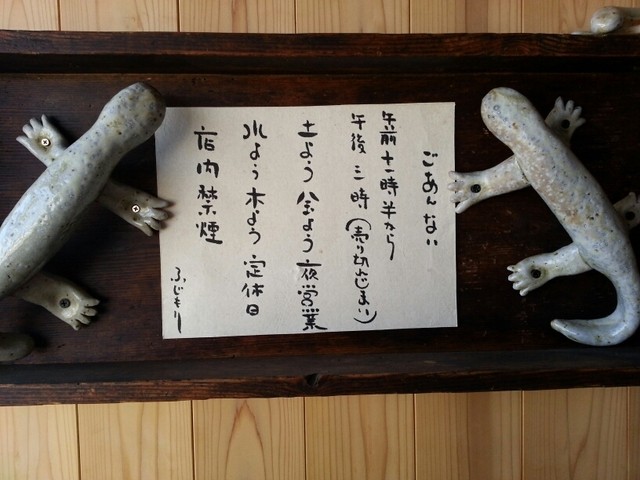 ごあんない
午前十一時半から
午後三時(売り切れじまい)
土よう金よう夜営業
水よう木よう定休日
店内禁煙
ふじもり